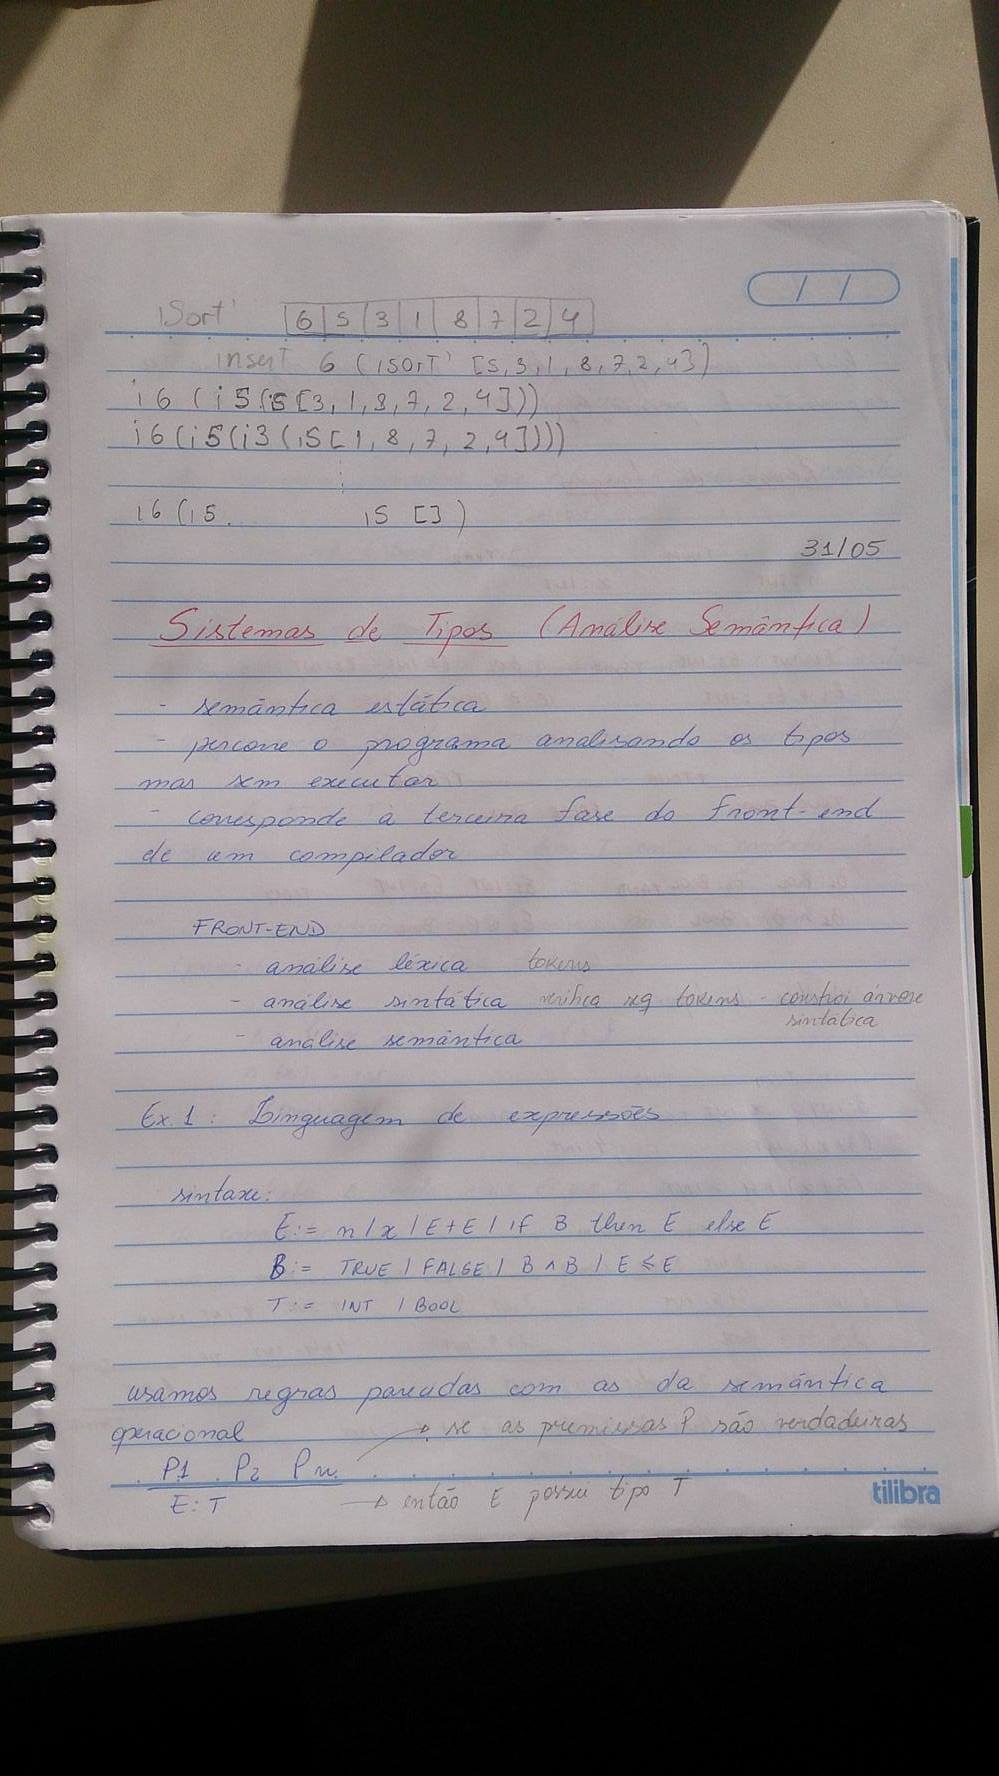 iSort' |6|5|3|1|8|7|2|4|
insert 6 (iSORT' [5,3,1,8,7,2,4])
i6 (i5(iS[3,1,8,7,2,4]))
i6(i5(i3(iS[1,8,7,2,4])))
i6 (i5. iS [])
31/05
Sistemas de Tipos (Análise Semântica)
- semântica estática
- percorre o programa analisando os tipos
mas sem executar
- corresponde à terceira fase do front-end
de um compilador
FRONT-END
- análise léxica tokens
- análise sintática verifica sq tokens - constroi árvore
sintatica
- análise semântica
Ex. 1: Linguagem de expressões
sintaxe:
E:= n | x | E+E | if B then E else E
B:= TRUE | FALSE | B ∧ B | E ≤ E
T:= INT | BOOL
usamos regras parecidas com as da semântica
operacional → se as premissas P são verdadeiras
P1 P2 Pn
E:T → então E possui tipo T
tilibra